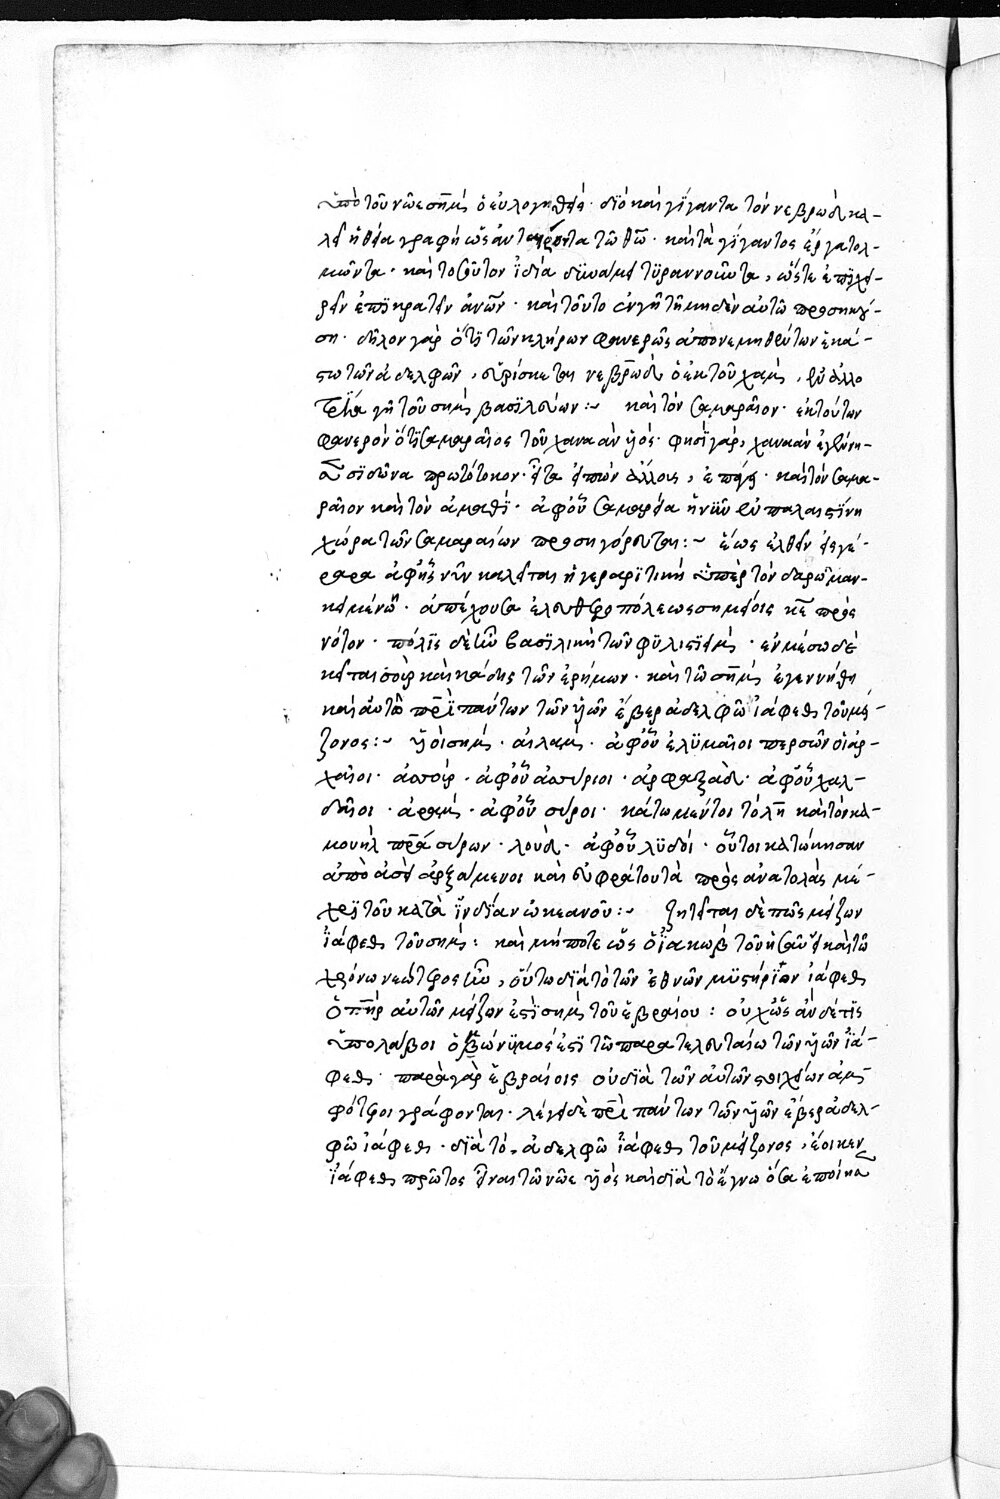 ὑπὸ τοῦ νῶε σὴμ ὁ εὐλογηθείς· διὸ καὶ γίγαντα τὸν νεβρὼδ κα-
λεῖ ἡ θεία γραφὴ ὡς ἀνταίροντα τῶ θῶ· καὶ τὰ γίγαντος ἔργα τολ-
μῶντα· καὶ τοσοῦτον ἰδία δυνάμει τυραννοῦντα, ὥστε ἐπιχει-
ρεῖν ἐπικρατεῖν ἀνῶν· καὶ τοῦτο ἐν γῆ τῆ μηδὲν αὐτῶ προσηκού-
ση· δῆλον γὰρ ὅτι τῶν κλήρων φανερῶς ἀπονεμηθέντων ἑκά-
στω τῶν ἀδελφῶν, εὑρίσκεται νεβρὼδ ὁ ἐκ τοῦ χαμ, ἐν ἀλλο
τρία γῆ τοῦ σημ βασιλεύων :~ καὶ τὸν σαμαραῖον· ἐκ τούτων
φανερὸν ὅτι σαμαραῖος τοῦ χαναὰν υἱός· φησὶ γάρ, χαναὰν ἐγέννη-
σε σιδῶνα πρωτότοκον· εἶτα εἰπὼν ἄλλους, ἐπάγει· καὶ τὸν σαμα-
ραῖον καὶ τὸν ἀμαθί· ἀφ' οὗ σαμάρεια ἡ νῦν ἐν παλαιστίνη
χώρα τῶν σαμαραίων προσηγόρευται :~ ἕως ἐλθεῖν εἰς γέ-
ραρα ἀφ' ἧς νῦν καλεῖται ἡ γεραριτικὴ ὑπὲρ τὸν δαρωμᾶν
κειμένη· ἀπέχουσα ἐλευθεροπόλεως σημείοις κε πρὸς
νότον· πόλις δὲ ἦν βασιλικὴ τῶν φυλιστιείμ· ἐν μέσω δὲ
κεῖται σοὺρ καὶ κάδης τῶν ἐρήμων· καὶ τῶ σὴμ ἐγεννήθη
καὶ αὐτῶ πρι πάντων τῶν υἱῶν ἕβερ ἀδελφῶ ἰάφεθ τοῦ μεί
ζονος :~ υἱοὶ σημ· αἰλάμ· ἀφ' οὗ ἐλυμαῖοι περσῶν οἱ ἀρ-
χαῖοι· ἀσσούρ· ἀφ' οὗ ἀσσύριοι· ἀρφαξάδ· ἀφ' οὗ χαλ-
δαῖοι· ἀράμ· ἀφ' οὗ σύροι· κάτω μέντοι τὸ λη καὶ τὸν κα-
μουὴλ πρα σύρων· λούδ· ἀφ' οὗ λυδοί· οὗτοι κατώκησαν
ἀπὸ ἀσίας ἀρξάμενοι καὶ εὐφράτου τὰ πρὸς ἀνατολὰς μέ-
χρι τοῦ κατὰ ἰνδίαν ὠκεανοῦ :~ ζητεῖται δὲ πῶς μείζων
ἰάφεθ τοῦ σημ: καὶ μήποτε ὡς ὁ ἰακὼβ τοῦ ἡσαῦ εἰ καὶ τῶ
χρόνω νεώτερος ἦν, οὕτω διὰ τὸ τῶν ἐθνῶν μυστήριον ἰάφεθ
ὁ πηρ αὐτῶν μείζων ἐστὶ σημ τοῦ ἑβραίου: οὐχ ὡς ἂν δέ τις
ὑπολάβοι ὁμώνυμός ἐστι τῶ παρατελευταίω τῶν υἱῶν ἰά-
φεθ· παρὰ γὰρ ἑβραίοις οὐ διὰ τῶν αὐτῶν στοιχείων ἀμ-
φότεροι γράφονται· λέγει δὲ πρι πάντων τῶν υἱῶν ἕβερ ἀδελ-
φῶ ἰάφεθ· διὰ τὸ, ἀδελφῶ ἰάφεθ τοῦ μείζονος, ἔοικεν
ἰάφεθ πρῶτος εἶναι τῶν νῶε υἱὸς καὶ διὰ τὸ ἔγνω ὅσα ἐποίησε